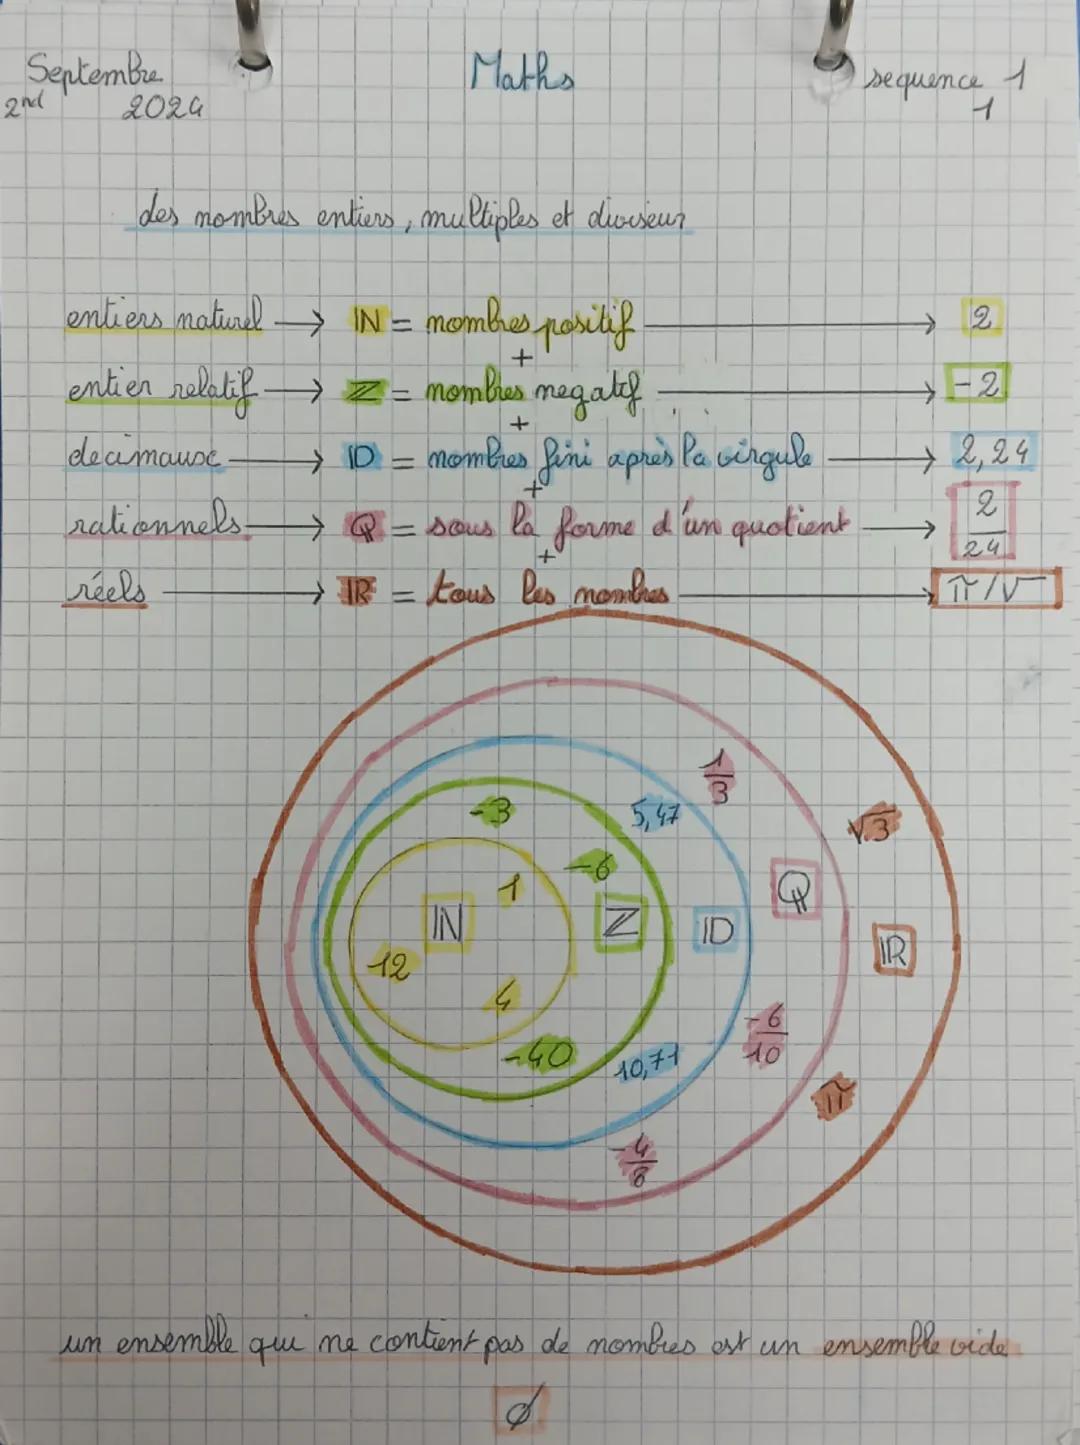 Septembre Maths sequence 1
2nd 2024 1
des nombres entiers, multiples et diviseur
entiers naturel → ℕ = nombres positif → 2
+
entier relatif → ℤ = nombres negatif → -2
+
decimaux → 𝔻 = nombres fini après la virgule → 2,24
+
rationnels → ℚ = sous la forme d'un quotient → 2/24
+
réels → ℝ = tous les nombres → π/√
1/3
-3 5,47 √3
-6
1 ℚ
ℕ ℤ 𝔻 ℝ
12
4 -6/10
-40 10,71
π
-4/8
un ensemble qui ne contient pas de nombres est un ensemble vide
∅